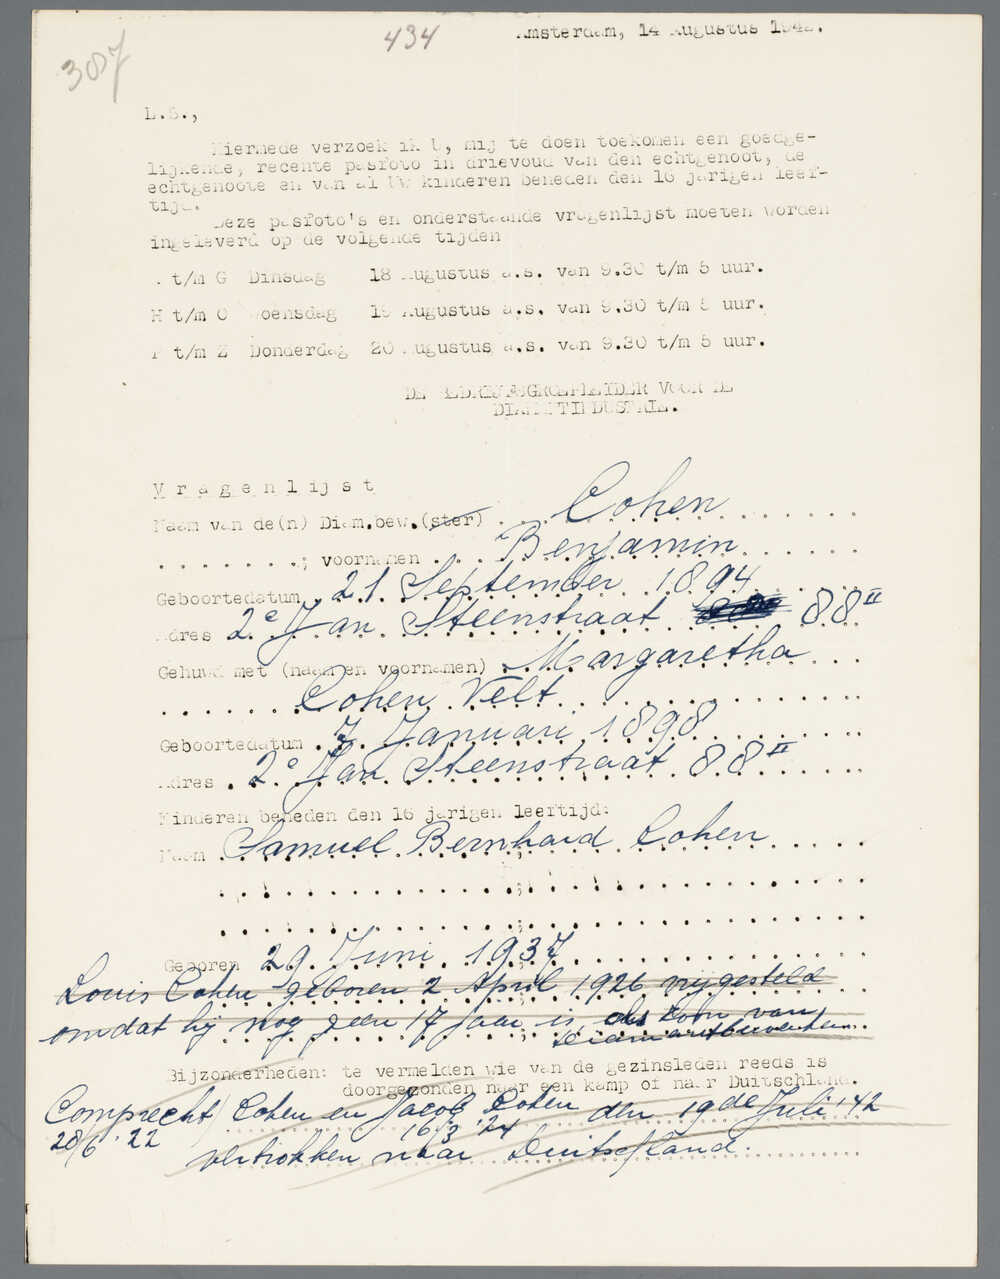 3087
434
Amsterdam, 14 Augustus 1942.
L.S.,
Hiermede verzoek ik U, mij te doen toekomen een goedge-
lijkende, recente pasfoto in drievoud van den echtgenoot, de
echtgenoote en van al Uw kinderen beneden den 16 jarigen leef-
tijd.
Deze pasfoto's en onderstaande vragenlijst moeten worden
ingeleverd op de volgende tijden
t/m G Dinsdag 18 Augustus a.s. van 9.30 t/m 5 uur.
H t/m O Woensdag 19 Augustus a.s. van 9.30 t/m 5 uur.
P t/m Z Donderdag 20 Augustus a.s. van 9.30 t/m 5 uur.
DE BEDRIJFSGROEPLEIDER VOOR DE
DIAMANTINDUSTRIE.
Vragenlijst
Naam van de(n) Diam.bew.(ster) Cohen
; voornamen Benjamin
Geboortedatum 21 September 1894
Adres 2e Jan Steenstraat 88 II
Gehuwd met (naam en voornamen) Margaretha
Cohen Velt
Geboortedatum 7 Januari 1898
Adres 2e Jan Steenstraat 88 II
Kinderen beneden den 16 jarigen leeftijd:
Naam Samuel Bernhard Cohen
Geboren 29 Juni 1937
Louis Cohen geboren 2 April 1926 vrijgesteld
omdat hij nog geen 17 jaar is als zoon van
Diamantbewerker
Bijzonderheden: te vermelden wie van de gezinsleden reeds is
doorgezonden naar een kamp of naar Duitschland.
Comprecht Cohen en Jacob Cohen den 19de Juli '42
28/6 '22 16/3 '24
vertrokken naar Duitschland.